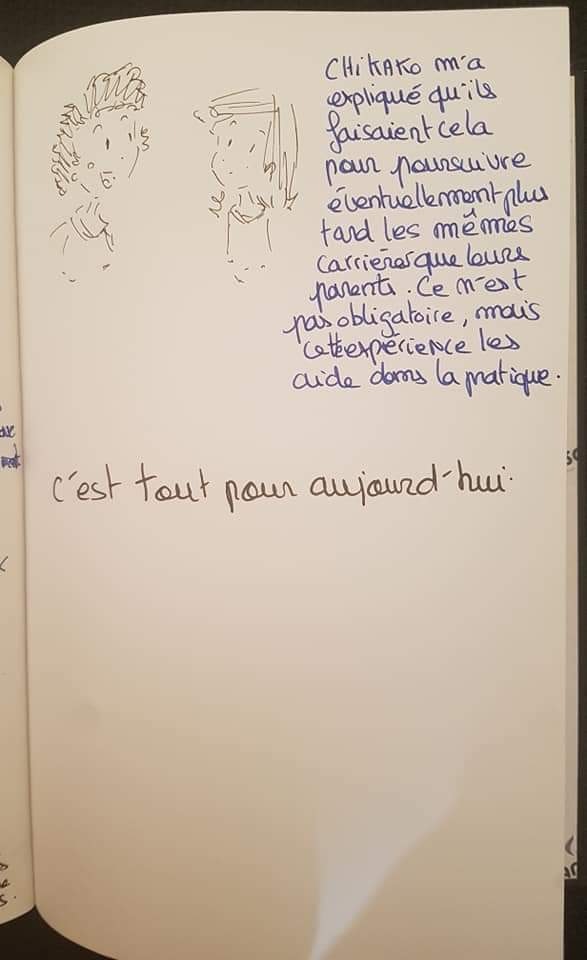 CHIKAKO m'a
expliqué qu'ils
faisaient cela
pour poursuivre
éventuellement plus
tard les mêmes
carrières que leurs
parents. Ce n'est
pas obligatoire, mais
cette expérience les
aide dans la pratique.
c'est tout pour aujourd'hui.